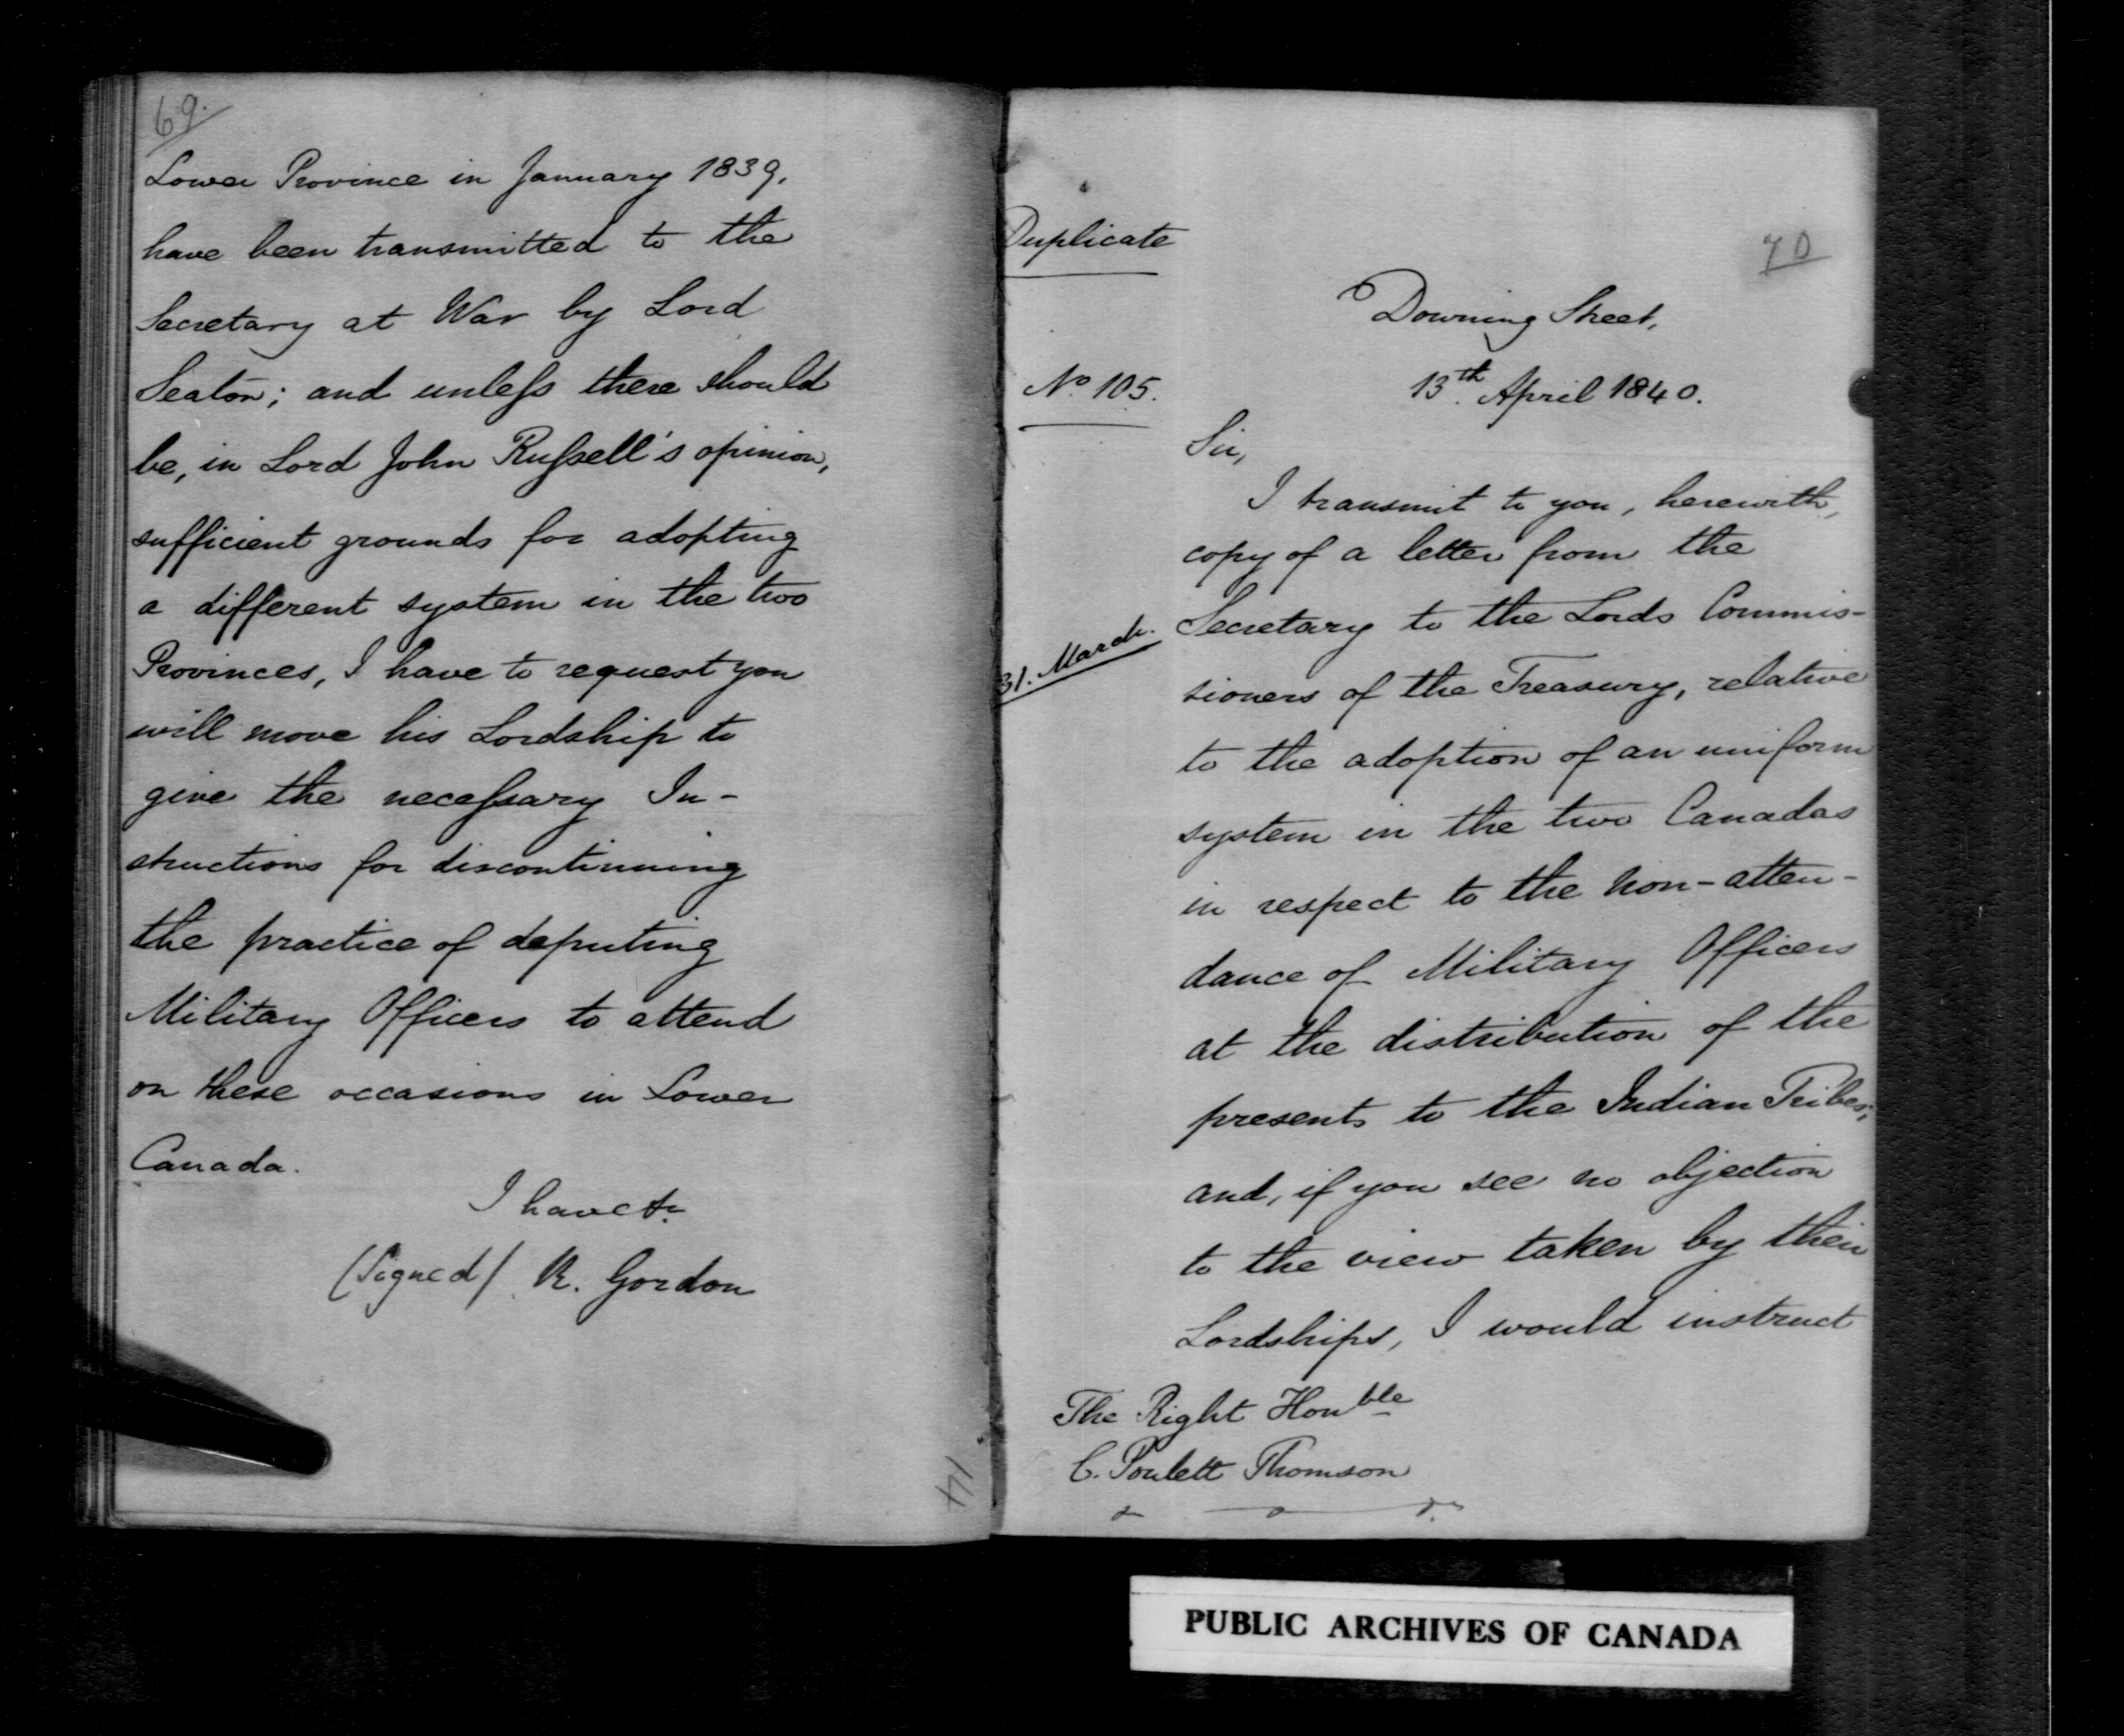 69.
Lower Province in January 1839,
have been transmitted to the
Secretary at War by Lord
Seaton; and unless there should
be, in Lord John Russell's opinion,
sufficient grounds for adopting
a different system in the two
Provinces, I have to request you
will move his Lordship to
give the necessary In-
structions for discontinuing
the practice of deputing
Military Officers to attend
on these occasions in Lower
Canada.
I have &c
(Signed) R. Gordon
171
Duplicate
70
Downing Street,
No 105.
13th. April 1840.
Sir,
I transmit to you, herewith,
copy of a letter from the
31. March.
Secretary to the Lords Commis-
sioners of the Treasury, relative
to the adoption of an uniform
system in the two Canadas
in respect to the non-atten-
dance of Military Officers
at the distribution of the
presents to the Indian Tribes;
and, if you see no objection
to the view taken by their
Lordships, I would instruct
The Right Honble
C. Poulett Thomson
PUBLIC ARCHIVES OF CANADA